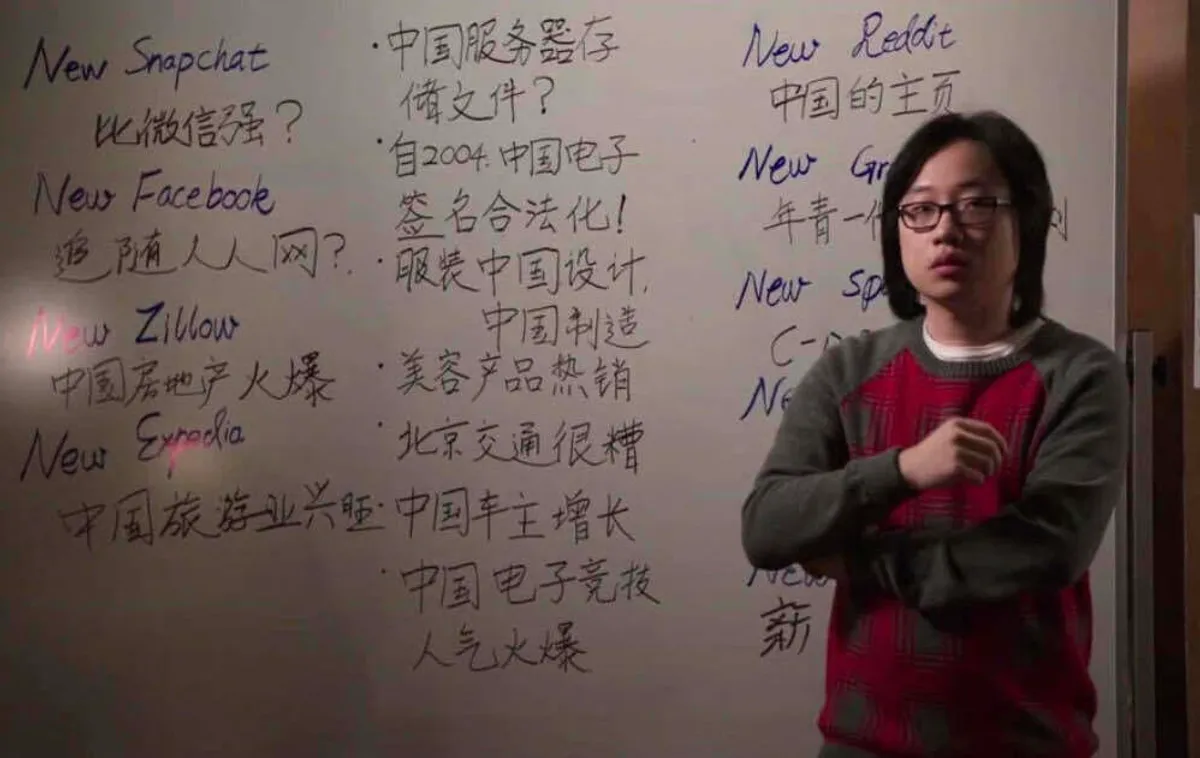 New Snapchat
比微信强?
New Facebook
追随人人网?
New Zillow
中国房地产火爆
New Expedia
中国旅游业兴旺
·中国服务器存
储文件?
·自2004.中国电子
签名合法化!
·服装中国设计.
中国制造
·美容产品热销
·北京交通很糟
·中国车主增长
·中国电子竞技
人气火爆
New Reddit
中国的主页
New
年青一
New
New
New
新